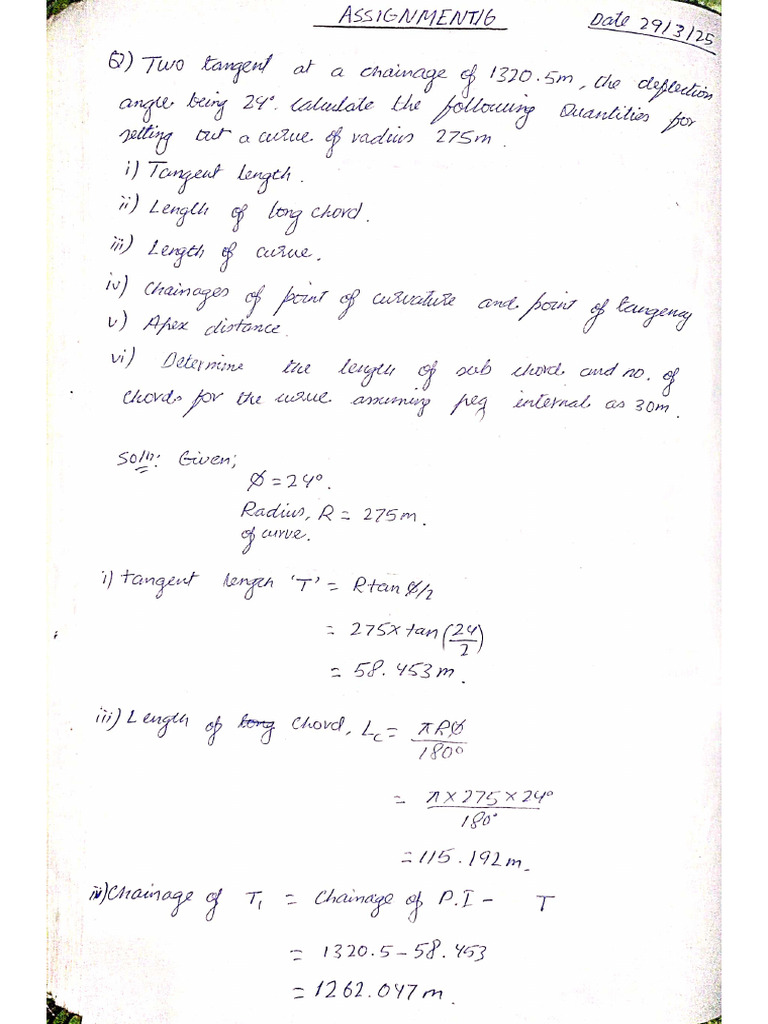 ASSIGNMENT/6
Date 29/3/25
Q) Two tangent at a chainage of 1320.5m, the deflection
angle being 24°. Calculate the following Quantities for
setting out a curve of radius 275m.
i) Tangent length.
ii) Length of long chord.
iii) Length of curve.
iv) Chainages of point of curvature and point of tangency
v) Apex distance.
vi) Determine the length of sub chord and no. of
chords for the curve assuming peg internal as 30m.
Soln: Given;
Ø = 24°.
Radius, R = 275m.
of curve.
i) tangent length 'T' = R tan Ø/2
= 275 x tan (24/2)
= 58.453m.
iii) Length of long Chord, Lc = πRØ/180°
= π x 275 x 24°/180°
= 115.192m.
iv) Chainage of T1 = Chainage of P.I - T
= 1320.5 - 58.453
= 1262.047m.